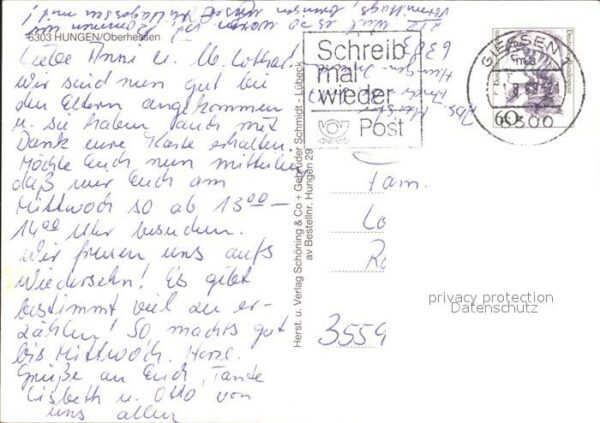 6303 HUNGEN/Oberhessen
Liebe Anne u. M. Lothar.
Wir sind nun gut bei
den Eltern angekommen
u. sie haben auch mit
Dank eure Karte erhalten.
Möchte Euch nun mitteilen
daß wir Euch am
Mittwoch so ab 13 00 –
14 00 Uhr besuchen.
Wir freuen uns aufs
Wiedersehn! Es gibt
bestimmt viel zu er-
zählen! So, machts gut
bis Mittwoch. Herz.
Grüße an Euch, Tante
Lisbeth u. Otto von
uns allen
Herst. u. Verlag Schöning & Co + Gebrüder Schmidt - Lübeck
av Bestellnr. Hungen 29
Schreib
mal
wieder
Post
GIESSEN 1
6300
60
Deutsche Bundespost
6303
Hungen
Fam.
Lo
Ro
3559
privacy protection
Datenschutz